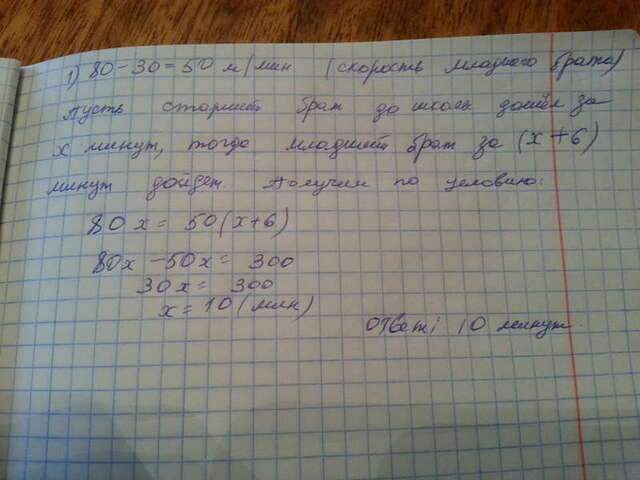 1) 80-30=50 м/мин (скорость младшего брата)
Пусть старший брат до школы дошёл за
x минут, тогда младший брат за (x+6)
минут дойдет. Получим по условию:
80x = 50(x+6)
80x - 50x = 300
30x = 300
x = 10 (мин)
Ответ: 10 минут.